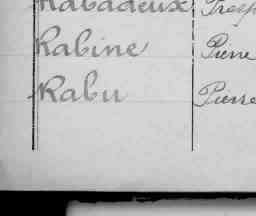 Rabadeux
Rabine Pierre
Rabu Pierre